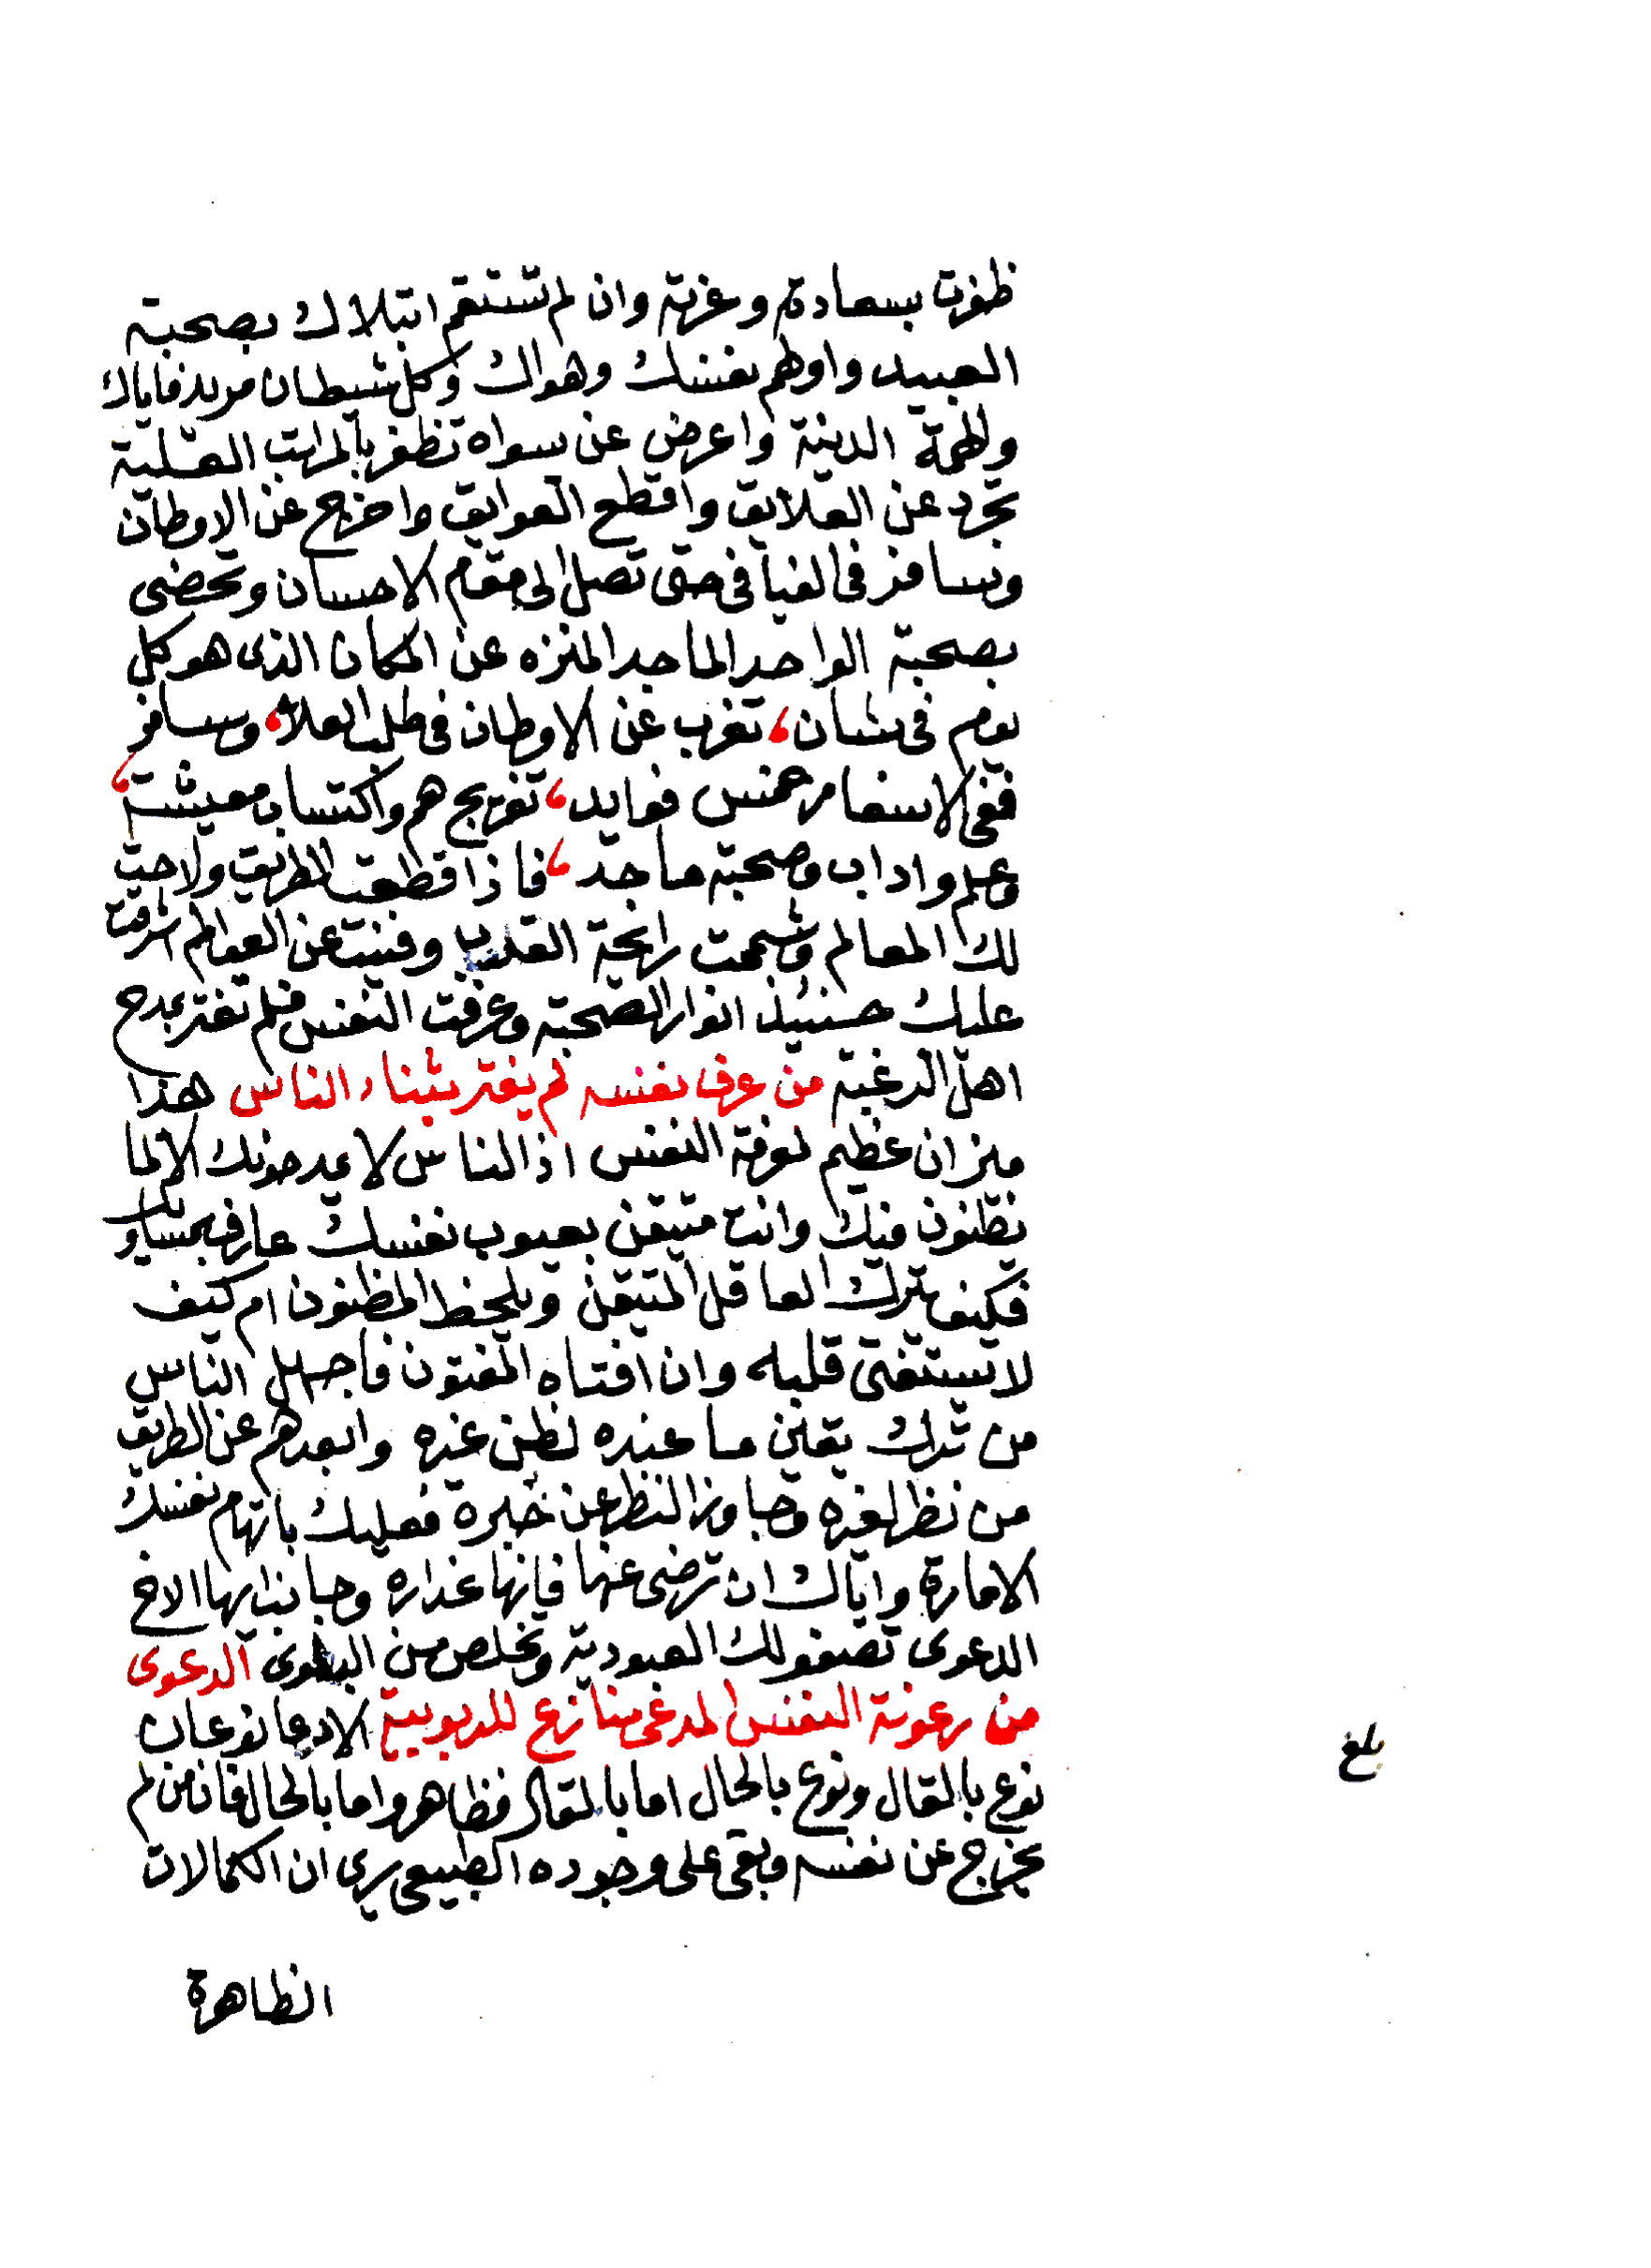 ظفرت بسعادته وعزته وان لم تستقم ابتلاك بصحبة
العبيد واولهم نفسك وهواك وكل شيطان مريد فاياك
والهمة الدنية واعرض عن سواه تظفر بالمراتب العلية
تجرد عن العلايق واقطع العوايق واخرج عن الاوطان
وتسافر في الفيافي حتى تصل الى مقام الاحسان وتحضى
بصحبة الواحد الماجد المنزه عن المكان الذى هو كل
يوم في شان، تغرب عن الاوطان في طلب العلا، وسافر
ففي الاسفار خمس فوايد، تفريج هم واكتساب معيشة،
وعلم واداب وصحبة ماجد، فاذا قطعت الطريق ولاحت
لك المعالم وشممت رائحة القرب وفنيت عن العوالم اشرقت
عليك حينئيذ انوار الصحبة وعرفت النفس فلم تغتر بمدح
اهل الرغبة من عرف نفسه لم يغتر بثناء الناس هذا
ميزان عظيم لمعرفة النفس اذ الناس لا يمدحونك الا لما
يظنون فيك وانت متيقن بعيوب نفسك عارف بمساويك
فكيف يترك العاقل المتيقن ويلحظ المظنون ام كيف
لا تستفتي قلبه وان افتاه المفتون فاجهل الناس
من ترك يقين ما عنده لظن غيره وابعدهم عن الطريق
من نظر لغيره وجاوز النظر عن خبره فعليك باتهام نفسك
الامارة واياك ان ترضى عنها فانها غداره وجانب ايها الاخ
الدعوى تصفو لك العبودية وتخلص من البلوى الدعوى
من رعونة النفس المدعي منازع للربوبية الادعا نوعان
نوع بالمقال ونوع بالحال اما بالمقال فظاهر واما بالحال فان من لم
يخرج عن نفسه وبقى على وجوده الطبيعي يرى ان الكمالات
بلغ
الظاهرة